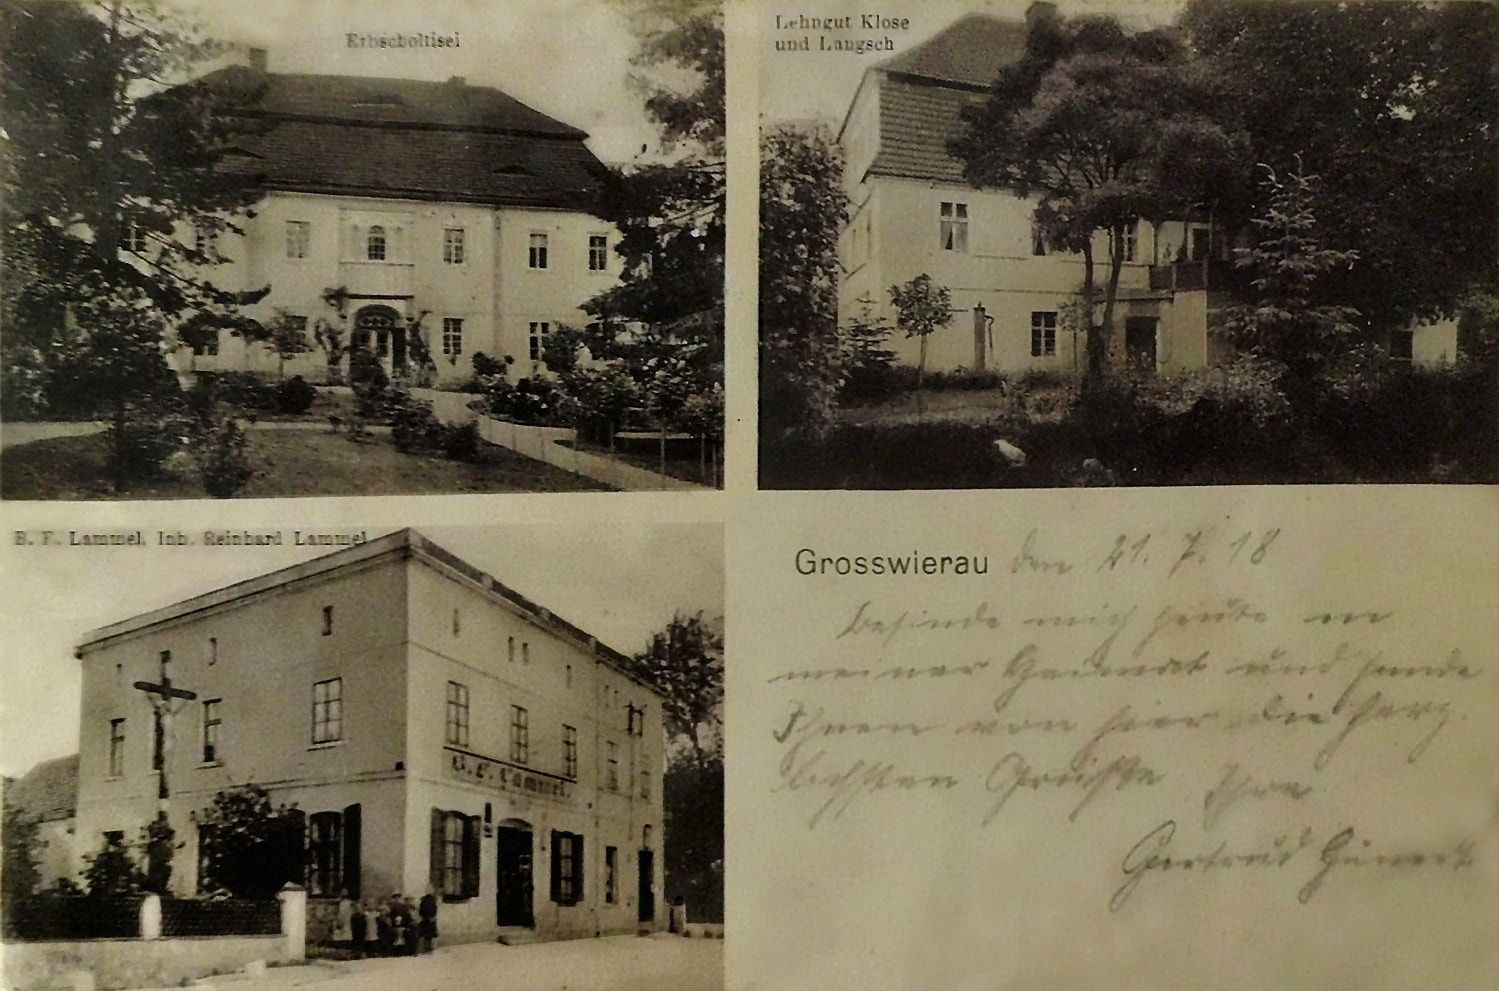 Erbscholtisei
Lehngut Klose
und Langsch
B. F. Lammel, Inh. Reinhard Lammel
B. F. Lammel.
Grosswierau den 21. 7. 18
Befinde mich heute in
meiner Heimat und sende
Ihnen von hier die herz-
lichsten Grüße Ihre
Gertrud